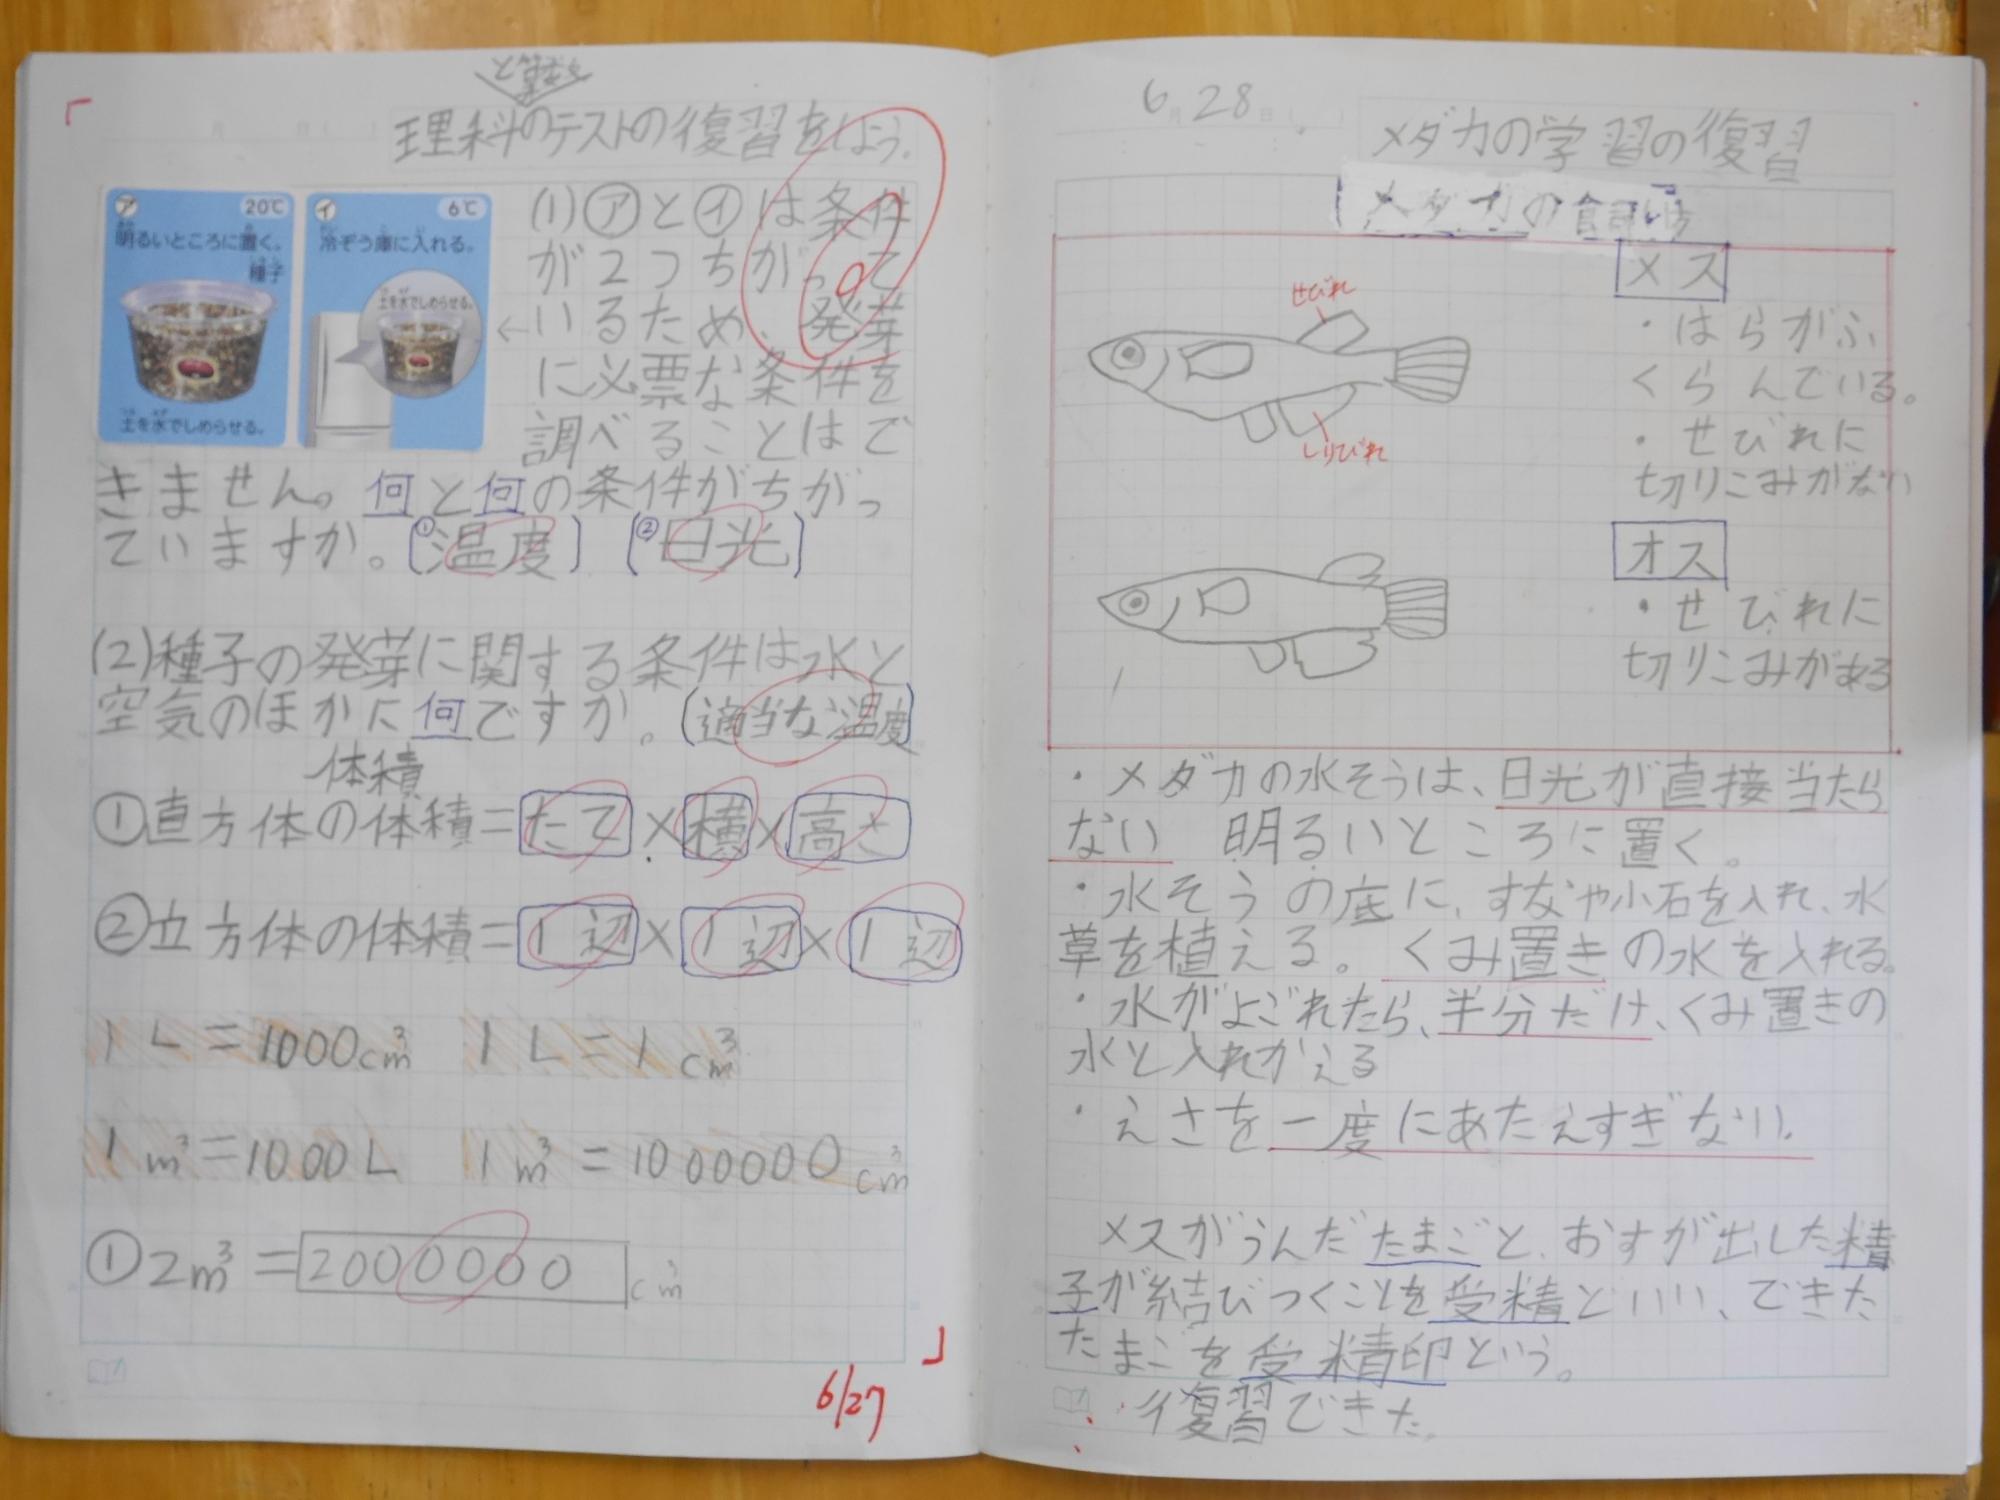 と算数
理科のテストの復習をしよう。
ア 20℃
明るいところに置く。
種子
土を水でしめらせる。
イ 6℃
冷ぞう庫に入れる。
土を水でしめらせる。
(1)㋐と㋑は条件
が2つちがって
←いるため、発芽
に必票な条件を
調べることはで
きません。何と何の条件がちがっ
ていますか。〔①温度〕〔②日光〕
(2)種子の発芽に関する条件は水と
空気のほかに何ですか。(適当な温度)
体積
①直方体の体積=たて×横×高さ
②立方体の体積=1辺×1辺×1辺
1L=1000cm³ 1L=1cm³
1m³=1000L 1m³=1000000cm³
①2m³=2000000cm³
6/27
6月28日
メダカの学習の復習
メダカの飼い方
せびれ
しりびれ
メス
・はらがふ
くらんでいる。
・せびれに
切りこみがない
オス
・せびれに
切りこみがある
・メダカの水そうは、日光が直接当たら
ない 明るいところに置く。
・水そうの底に、すなや小石を入れ、水
草を植える。くみ置きの水を入れる。
・水がよごれたら、半分だけ、くみ置きの
水と入れかえる
・えさを一度にあたえすぎない。
メスがうんだたまごと、おすが出した精
子が結びつくことを受精といい、できた
たまごを受精卵という。
・復習できた。